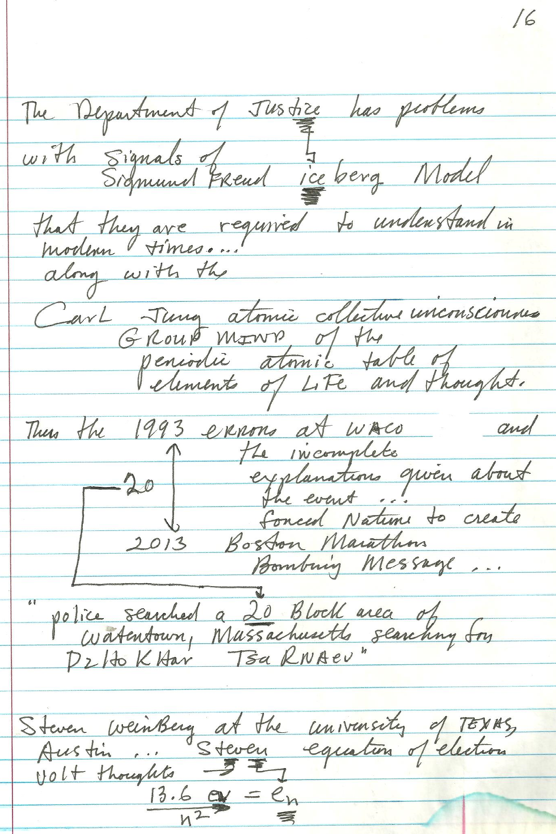 16
The Department of Justice has problems
with Signals of
Sigmund Freud iceberg Model
that they are required to understand in
modern times....
along with the
Carl Jung atomic collective unconscious
GROUP MIND of the
periodic atomic table of
elements of LiFe and thought.
Thus the 1993 errors at WACO and
the incomplete
explanations given about
the event ...
forced Nature to create
20
2013 Boston Marathon
Bombing Message ...
"police searched a 20 Block area of
Watertown, Massachusetts searching for
DzHo KHar TsaRNAev"
Steven WeinBerg at the university of TEXAS,
Austin ... Steven equation of electron
volt thoughts
13.6 ev = en
n²